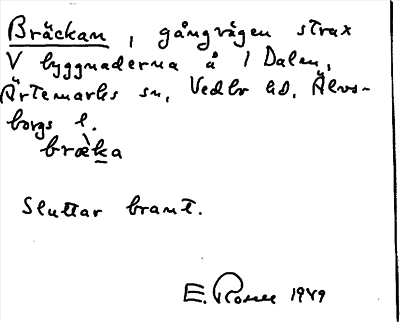 Bräckan, gångvägen strax
V byggnaderna å 1 Dalen,
Ärtemarks sn, Vedbo hd, Älvs-
borgs l.
bræ̀ka
Sluttar brant.
E. 1949